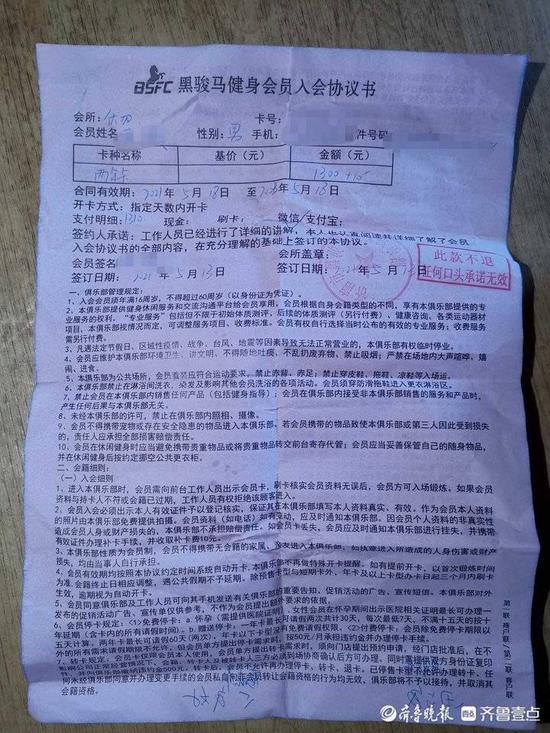 BSFC 黑骏马健身会员入会协议书
会所: 卡号:
会员姓名 性别: 男 手机: 件号码
卡种名称 基价(元) 金额(元)
两年 1300 +10
合同有效期: 2021年5月18日至 年5月18日
开卡方式: 指定天数内开卡
支付明细: 1310 现金: 刷卡: 微信/支付宝:
签约人承诺: 工作人员已经进行了详细的讲解,
入会协议书的全部内容,在充分理解的基础上签订的本协议。
会员签名 会所盖章:
签订日期: 2021年5月13日 签订日期: 2021年5月13日
此款不退
任何口头承诺无效
一、俱乐部管理规定:
1、入会会员须年满16周岁,不得超过60周岁(以身份证为凭证)。
2、本俱乐部提供健身休闲服务和交流沟通平台给会员享用,会员根据自身会籍类型的不同,享有本俱乐部提供的专
业服务的权利,"专业服务"包括但不限于初始体质测评,后续的体质测评(另行付费)、健康咨询、各类运动器材
项目,本俱乐部视情况而定,可调整服务项目、收费标准。会员有权自行选择当时公布的有效的专业服务;收费服务
需另行付费。
3、凡遇法定节假日、区域性疫情、战争、台风、地震等因素导致无法正常营业的,本俱乐部有权临时停业。
4、会员应维护本俱乐部环境卫生,讲文明,不得随地吐痰、不乱扔废弃物、禁止吸烟;严禁在场地内大声喧哗、嬉
闹、进食。
5、本俱乐部为公共场所,会员着装应符合运动要求,禁止赤背、赤足;禁止穿皮鞋、拖鞋、凉鞋等入场运。
6、本俱乐部禁止在淋浴间洗衣、染发及影响其他会员洗浴的各项活动。会员须穿防滑拖鞋进入更衣淋浴区。
7、禁止会员在本俱乐部内销售任何产品(包括健身指导);会员在俱乐部内接受非本俱乐部销售的服务和产品时,
产生任何后果与本俱乐部无关。
8、未经本俱乐部的许可,禁止在俱乐部内照相、摄像。
9、会员不得携带宠物或存在安全隐患的物品进入本俱乐部,若会员携带的物品致使本俱乐部或第三人因此受到损失
的,责任人应承担全部损害赔偿责任。
10、会员在休闲健身时应当避免携带贵重物品或将贵重物品转交前台寄存代管;会员应当妥善保管自己的随身物品,
并在休闲健身后按约定挪空公共更衣柜。
二、会籍细则:
(一)入会细则:
1、进入本俱乐部时,会员需向前台工作人员出示会员卡,刷卡核实会员资料无误后,会员方可入场锻炼,如果会员
资料与持卡人不符或会籍已过期,工作人员有权拒绝该顾客进入。
2、会员入会必须出示本人有效证件予以登记核实,保证其在本俱乐部填写本人资料真实、有效。作为会员本人资料
的照片由本俱乐部免费提供拍摄。会员资料(如电话)如有变动,应及时通知本俱乐部,因会员个人资料的非真实性
造成会员人身或财产损失的,本俱乐部不承担赔偿责任。如会员卡丢失,会员应及时通知本俱乐部进行挂失,并携带
有效证件办理补卡手续,并收取补卡费10元。
3、本俱乐部性质为会员制,会员不得携带无会籍的家属、亲友进入本俱乐部,如执意进入所造成的人身伤害或财产
损失,均由当事人自行承担。
4、会员有效期均按照本协议约定时间系统自动开卡,本俱乐部不再做特殊开卡提醒。如有提前开卡,以首次锻炼时间
为准,会籍终止日相应调整,遇公共假期不予延期。除预售卡型与短期卡外,年卡及以上卡型办卡日起三个月内刷卡
生效,逾期视为自动开卡。
5、会员同意俱乐部及工作人员可向其手机发送有关俱乐部的重要通知、促销活动的广告、宣传短信。本俱乐部对外
发布的促销活动广告、宣传单仅供参考,不作为会员提出额外要求的依据。
6、会员停卡规定:(1)免费停卡: a.怀孕(需提供医院证明),女性会员在怀孕期间出示医院相关证明最长可办理一
年延期(含卡内的所有请假时间)。
外的所有需求请假期限不允许,但会员单方提出停卡需求时,按50元/月承担违约金并办理停卡手续。
任何未经俱乐部同意并办理变更手续的会员私自向非会员转让会籍资格的行为均无效,俱乐部将不予以接待,并取消其
会籍资格。
第一联 客户联 第二联 客户联
齐鲁晚报 齐鲁壹点